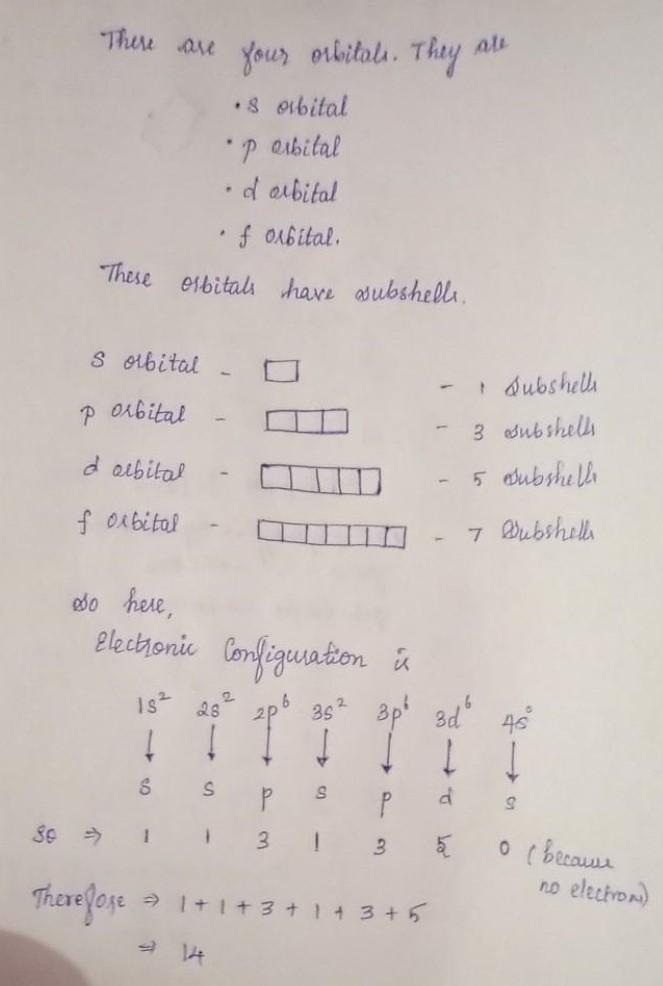 There are four orbitals. They are
• s orbital
• p orbital
• d orbital
• f orbital.
These orbitals have subshells.
s orbital - - 1 Subshells
p orbital - - 3 subshells
d orbital - - 5 subshells
f orbital - - 7 Subshells
so here,
Electronic Configuration is
1s² 2s² 2p⁶ 3s² 3p⁶ 3d⁶ 4s⁰
↓ ↓ ↓ ↓ ↓ ↓ ↓
s s p s p d s
so ⇒ 1 1 3 1 3 5 0 (because
no electron)
Therefore ⇒ 1 + 1 + 3 + 1 + 3 + 5
⇒ 14